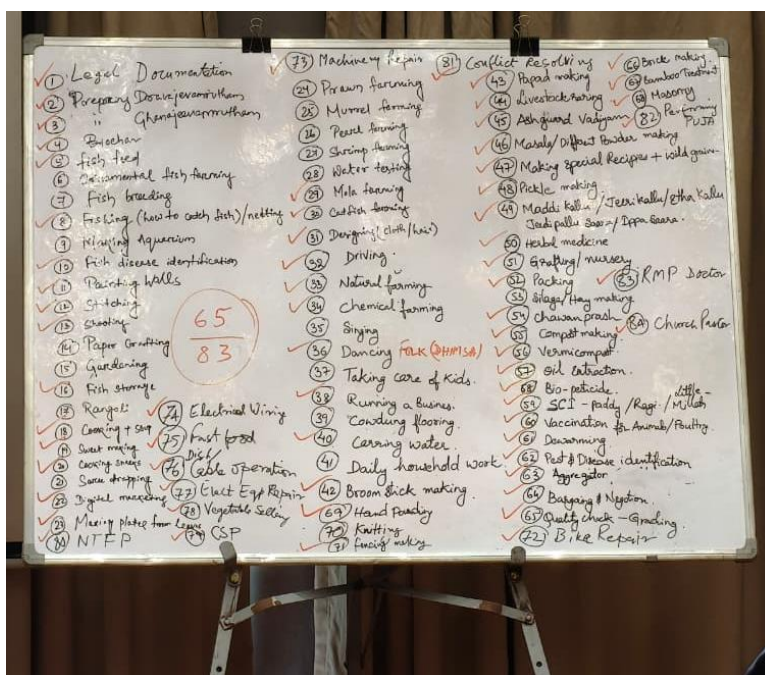 ① Legal Documentation
② Preparing Dravajeevamrutham
③ " Ghanajeevamrutham
④ Biochar
⑤ fish feed
⑥ Ornamental fish farming
⑦ Fish breeding
⑧ Fishing (how to catch fish)/netting
⑨ Aquarium
⑩ Fish disease identification
⑪ Painting Walls
⑫ Stitching
⑬ Shooting
⑭ Paper Crafting
⑮ Gardening
⑯ Fish storage
⑰ Rangoli
⑱ Cooking +
⑲ Sweet making
⑳ Cooking
㉑ Saree drapping
㉒ Digital marketing
㉓ Making plates from leaves
80 NTFP
65
83
74 Electrical Wiring
75 Fast food
76 Dish/
Cable operation
77 Elect Eqp Repair
78 Vegetable Selling
79 CSP
73 Machinery Repair
24 Prawn farming
25 Murrel farming
26 Pearl farming
27 Shrimp farming
28 Water testing
29 Mola farming
30 Catfish farming
31 Designing (cloth/hair)
32 Driving.
33 Natural farming
34 Chemical farming
35 Singing
36 Dancing FOLK (DHIMSA)
37 Taking care of Kids.
38 Running a Busines.
39 Cowdung flooring.
40 Carring water.
41 Daily household work.
42 Broom stick making.
69 Hand Pandiy
70 Knitting
71 fencing making
81 Conflict Resolving
43 Papad making
44 Livestock
45 Ashguard Vadiyam
46 Masala/Diffrent Powder making
47 Making Special Recipes + wild
48 Pickle making
49 Maddi Kallu/Jeeri kallu/etha Kallu
Jeedipallu Saara/Ippa Saara.
50 Herbal medicine
51 Grafting/nursery
52 Packing
53 Silage/Hay making
54 chawanprash
55 Compost making
56 Vermicompost
57 Oil Extraction.
58 Bio-peticide.
59 SCI - paddy/Ragi/Little Millets
60 Vaccination for Animals/Poultry.
61 Dewarming
62 Pest & Disease identification
63 Aggregator
64 Bargaing &
65 Quality check - Grading.
72 Bike Repair
66 Brick making.
67 Bamboo Treatment
68 Masonry
82 Performing
PUJA
83 RMP Doctor
84 Church Pastor